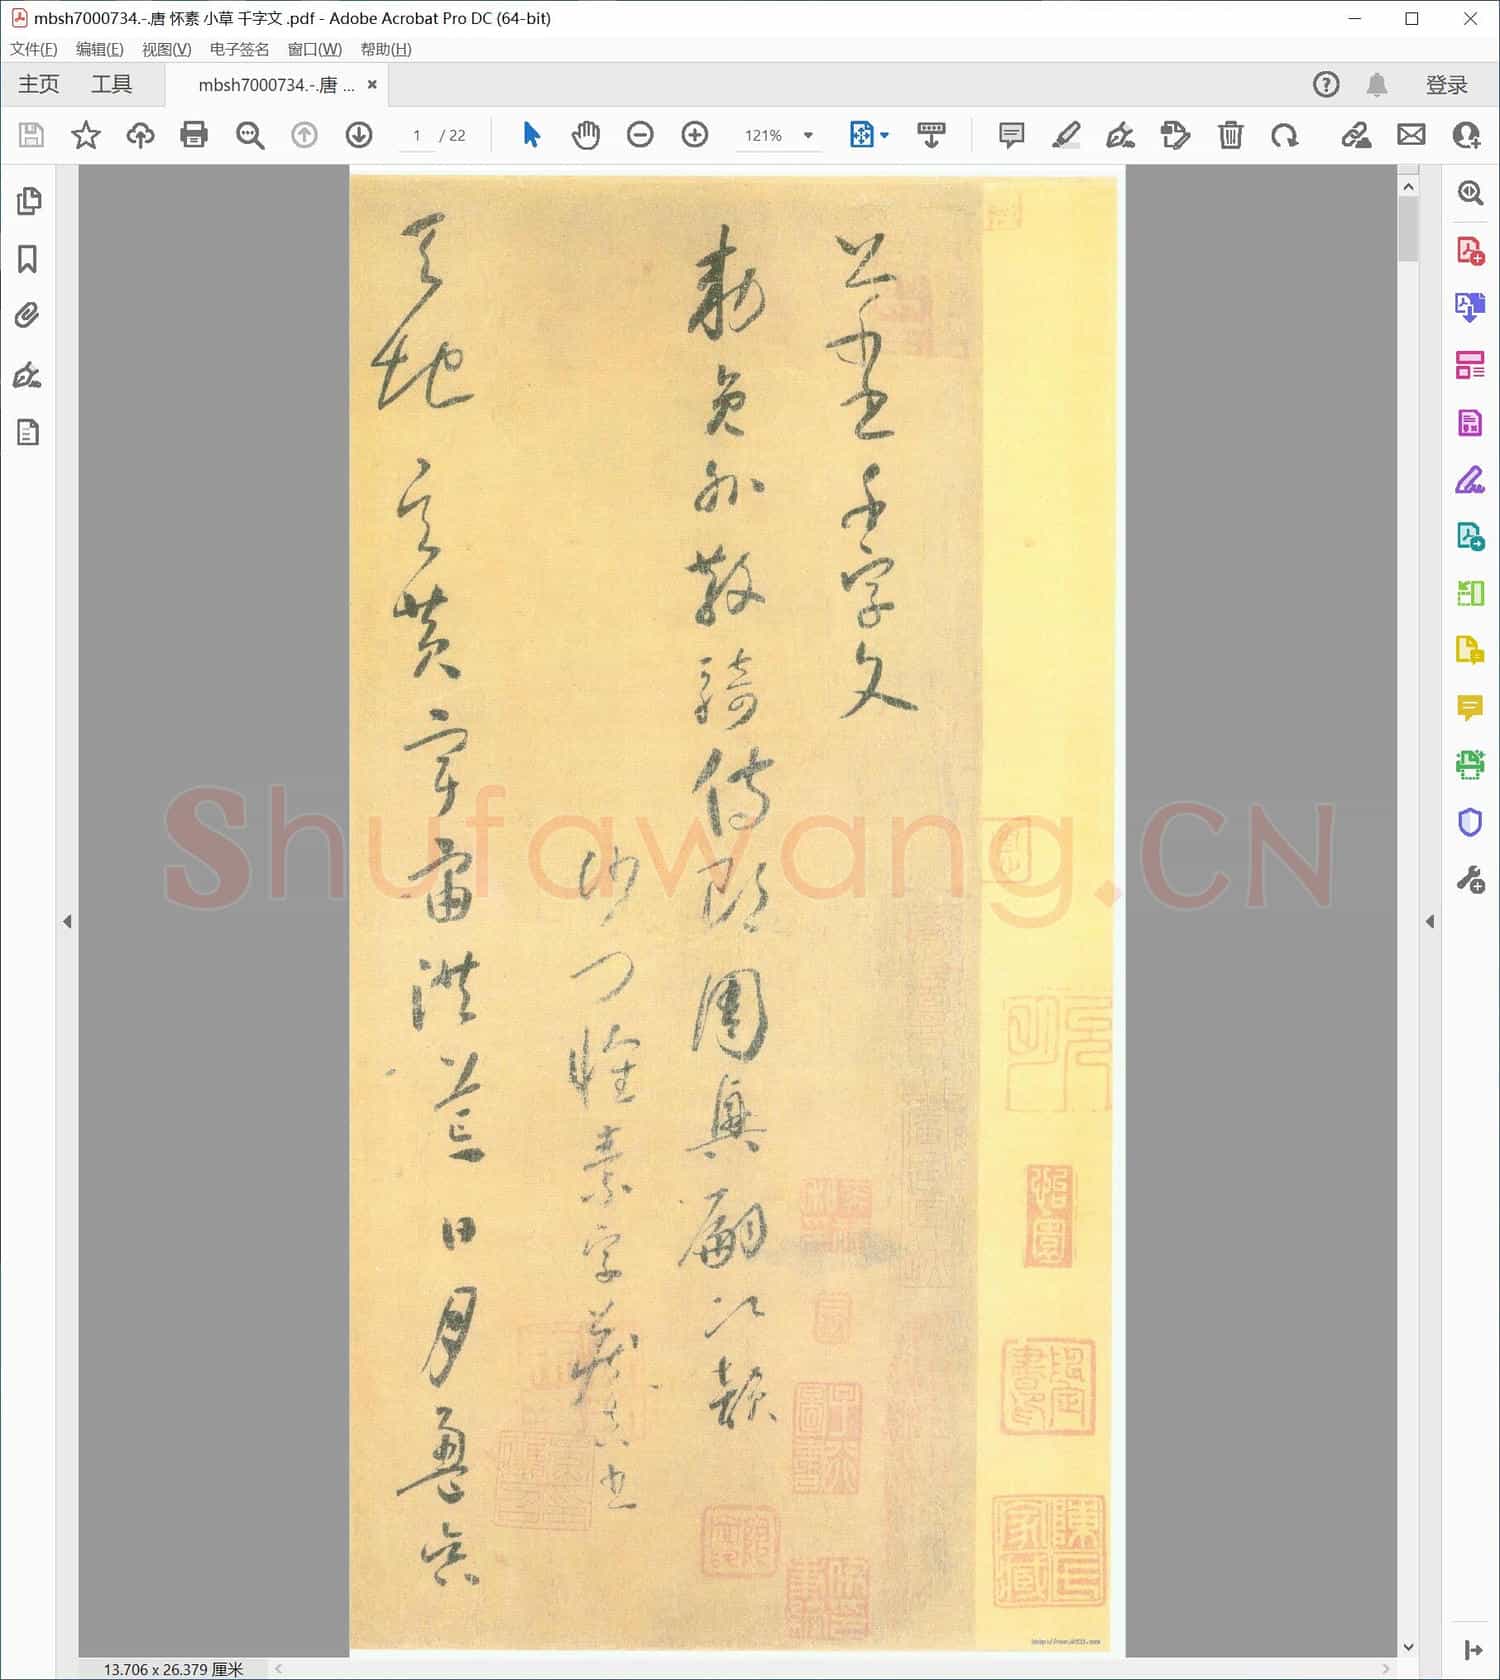 mbsh7000734.-.唐 怀素 小草 千字文 .pdf - Adobe Acrobat Pro DC (64-bit)
文件(F) 编辑(E) 视图(V) 电子签名 窗口(W) 帮助(H)
主页 工具 mbsh7000734.-.唐 ... × 登录
1 / 22 121%
草书千字文
勅员外散骑侍郎周兴嗣次韵
沙门怀素字藏真书
天地玄黄宇宙洪荒日月盈昃
怡园
陈氏家藏
Shufawang.CN
13.706 x 26.379 厘米